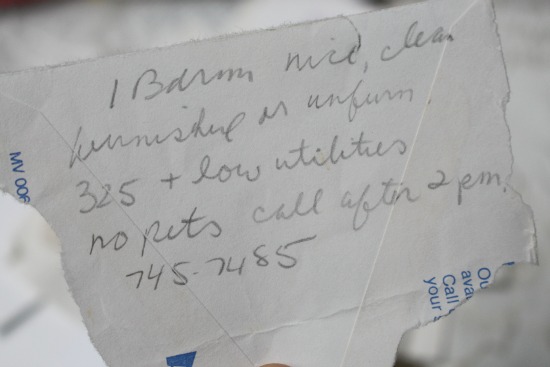 1 Bdrm nice, clean
furnished or unfurn
325 + low utilities
no pets call after 2 pm.
745-7485
MV 006
Ou
avai
Call
your